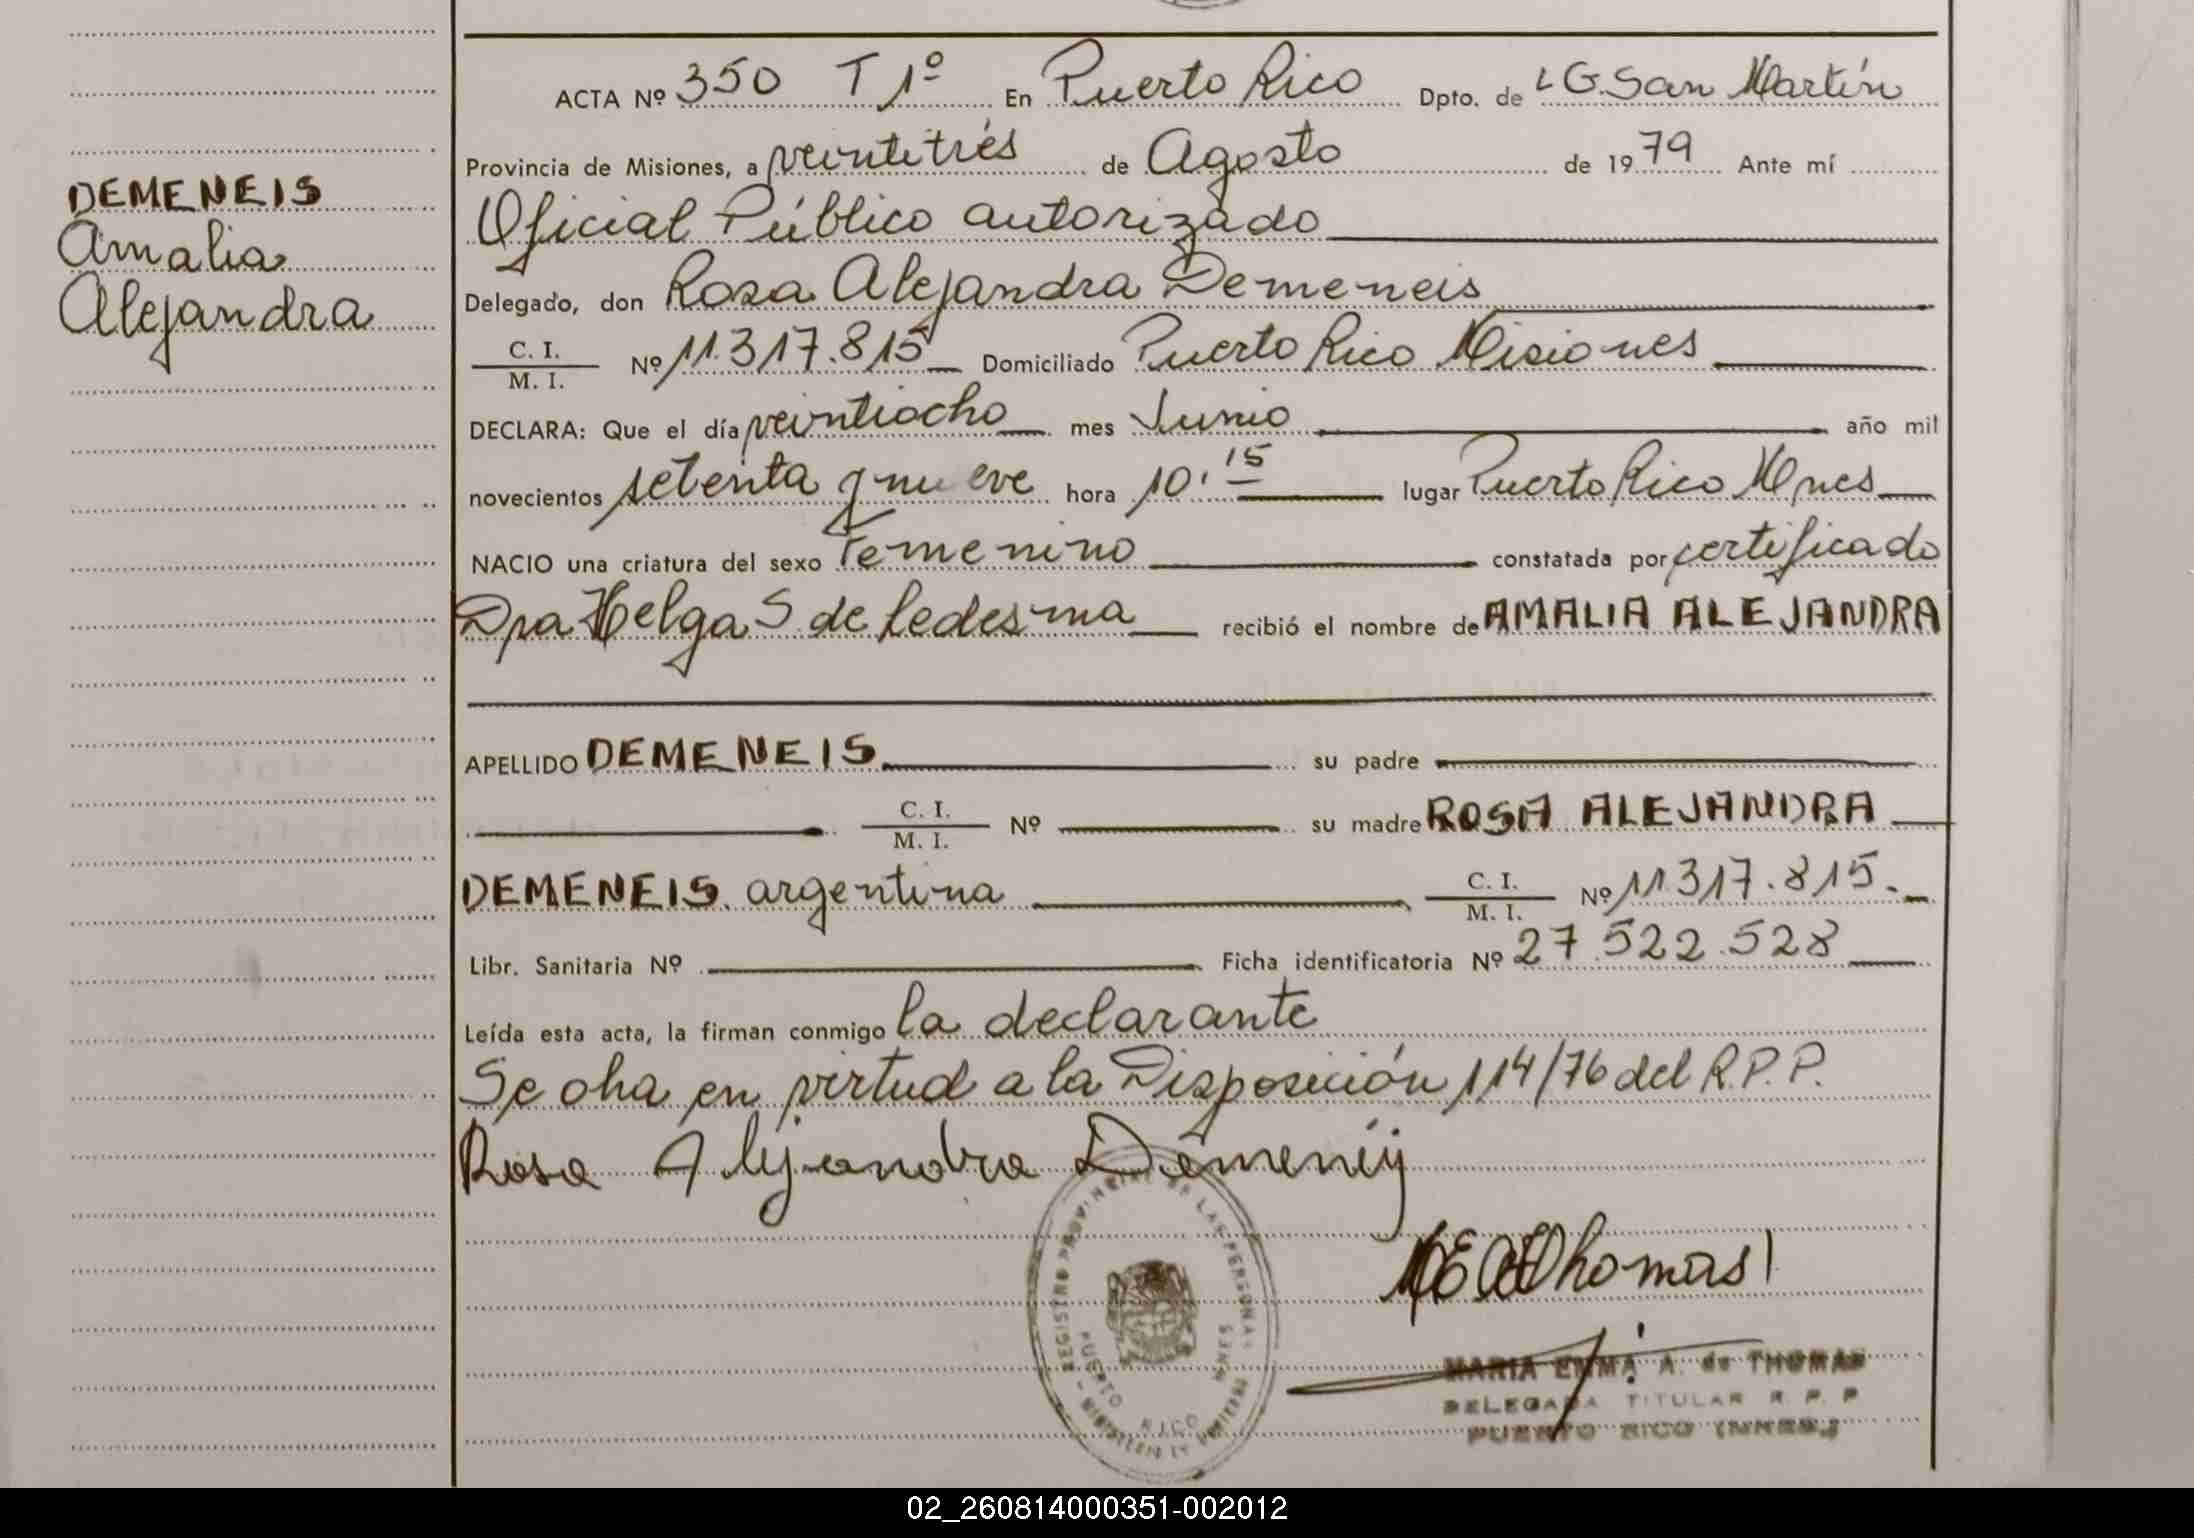 DEMENEIS
Amalia
Alejandra
ACTA Nº 350 T 1º En Puerto Rico Dpto. de L G. San Martín
Provincia de Misiones, a veintitrés de Agosto de 1979 Ante mí
Oficial Público autorizado
Delegado, don Rosa Alejandra Demeneis
C. I.
M. I.
Nº 11.317.815 Domiciliado Puerto Rico Misiones
DECLARA: Que el día veintiocho mes Junio año mil
novecientos setenta y nueve hora 10.15 lugar Puerto Rico Mnes
NACIO una criatura del sexo Femenino constatada por certificado
Dra Helga S de Ledesma recibió el nombre de AMALIA ALEJANDRA
APELLIDO DEMENEIS su padre
C. I.
M. I.
Nº su madre ROSA ALEJANDRA
DEMENEIS. argentina C. I.
M. I.
Nº 11.317.815.
Libr. Sanitaria Nº Ficha identificatoria Nº 27.522.528
Leída esta acta, la firman conmigo la declarante
Se en virtud a la Disposición 114/76 del R.P.P.
Rosa Alejandra
Thomas
REGISTRO PROVINCIAL DE LAS PERSONAS
PUERTO RICO MNES
MARIA EMMA A. de THOMAS
DELEGADA TITULAR R. P. P
PUERTO RICO (MNES.)
02_260814000351-002012